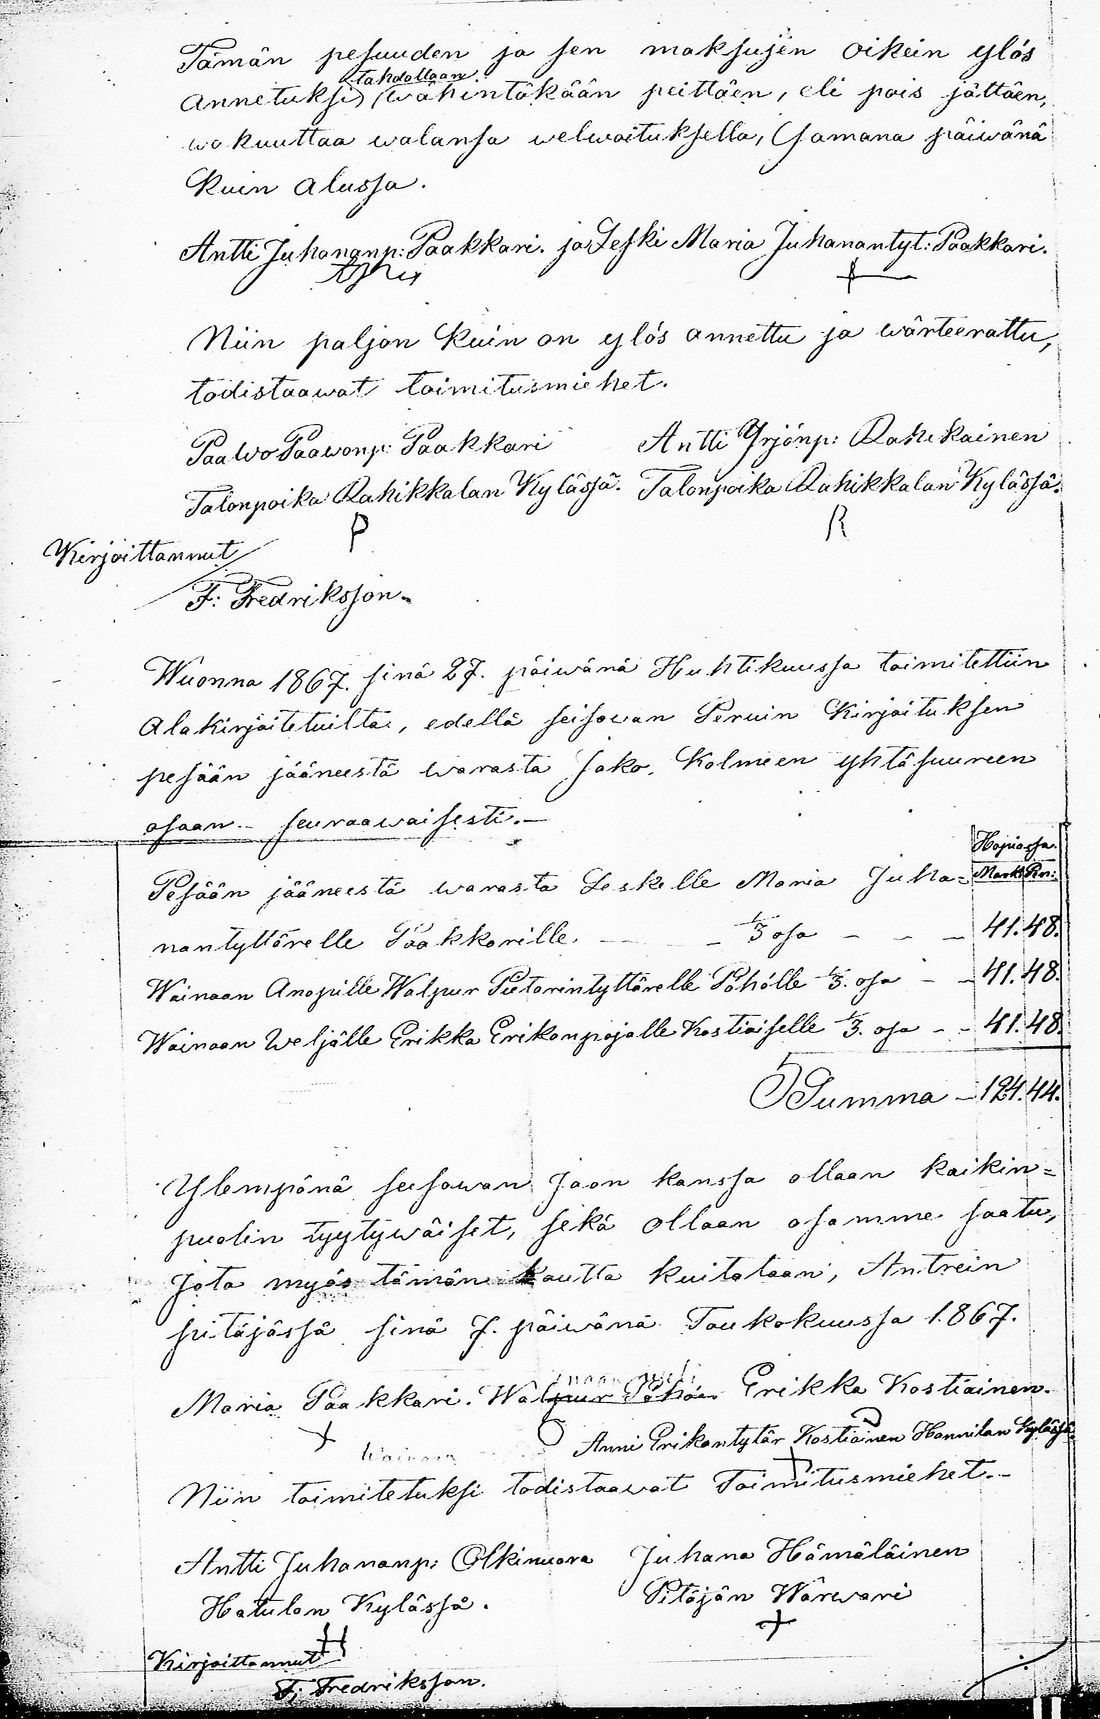 Tämän pesuuden ja sen maksujen oikein ylös
tahdollaan
annetuksi, wähintäkään peittäen, eli pois jättäen,
wakuuttaa walansa welwoituksella, Samana päiwänä
kuin alussa.
Antti Juhananp: Paakkari. ja Leski Maria Juhanantyt: Paakkari.
Niin paljon kuin on ylös annettu ja wärteerattu,
todistaawat toimitusmiehet.
Paawo Paawonp: Paakkari Antti Yrjönp: Rahikainen
Talonpoika Rahikkalan Kylässä. Talonpoika Rahikkalan Kylässä.
P R
Kirjoittannut
F: Fredriksson.
Wuonna 1867. sinä 27. päiwänä Huhtikuussa toimitettiin
alakirjoitetuilta, edellä seisowan Perun Kirjoituksen
pesään jääneestä warasta jako. Kolmeen yhtäsuureen
osaan seuraawaisesti.
Hopiassa.
Mark: Pn:
Pesään jääneestä warasta Leskelle Maria Juha=
nantyttärelle Paakkarille. 1/3 osa 41.48.
Wainaan Anopille Walpur Pietarintyttärelle Pöhölle 1/3. osa 41.48.
Wainaan Weljälle Erikka Erikanpojalle Kostiaiselle 1/3. osa 41.48.
Summa 124.44.
Ylempänä seisowan jaon kanssa ollaan kaikin=
puolin tyytywäiset, sekä ollaan osamme saatu,
Jota myös tämän kautta kuitataan, Antrein
pitäjässä sinä 7. päiwänä Toukokuussa 1867.
Maria Paakkari. Walpur Pöhö Erikka Kostiainen.
Anni Erikantytär Kostiainen Hannilan Kylässä.
Wainaan
Niin toimitetuksi todistaawat Toimitusmiehet.
Antti Juhananp: Olkinuora Juhana Hämäläinen
Hatulan Kylässä. Pitäjän Wärwari
H
Kirjoittannut
F: Fredriksson.